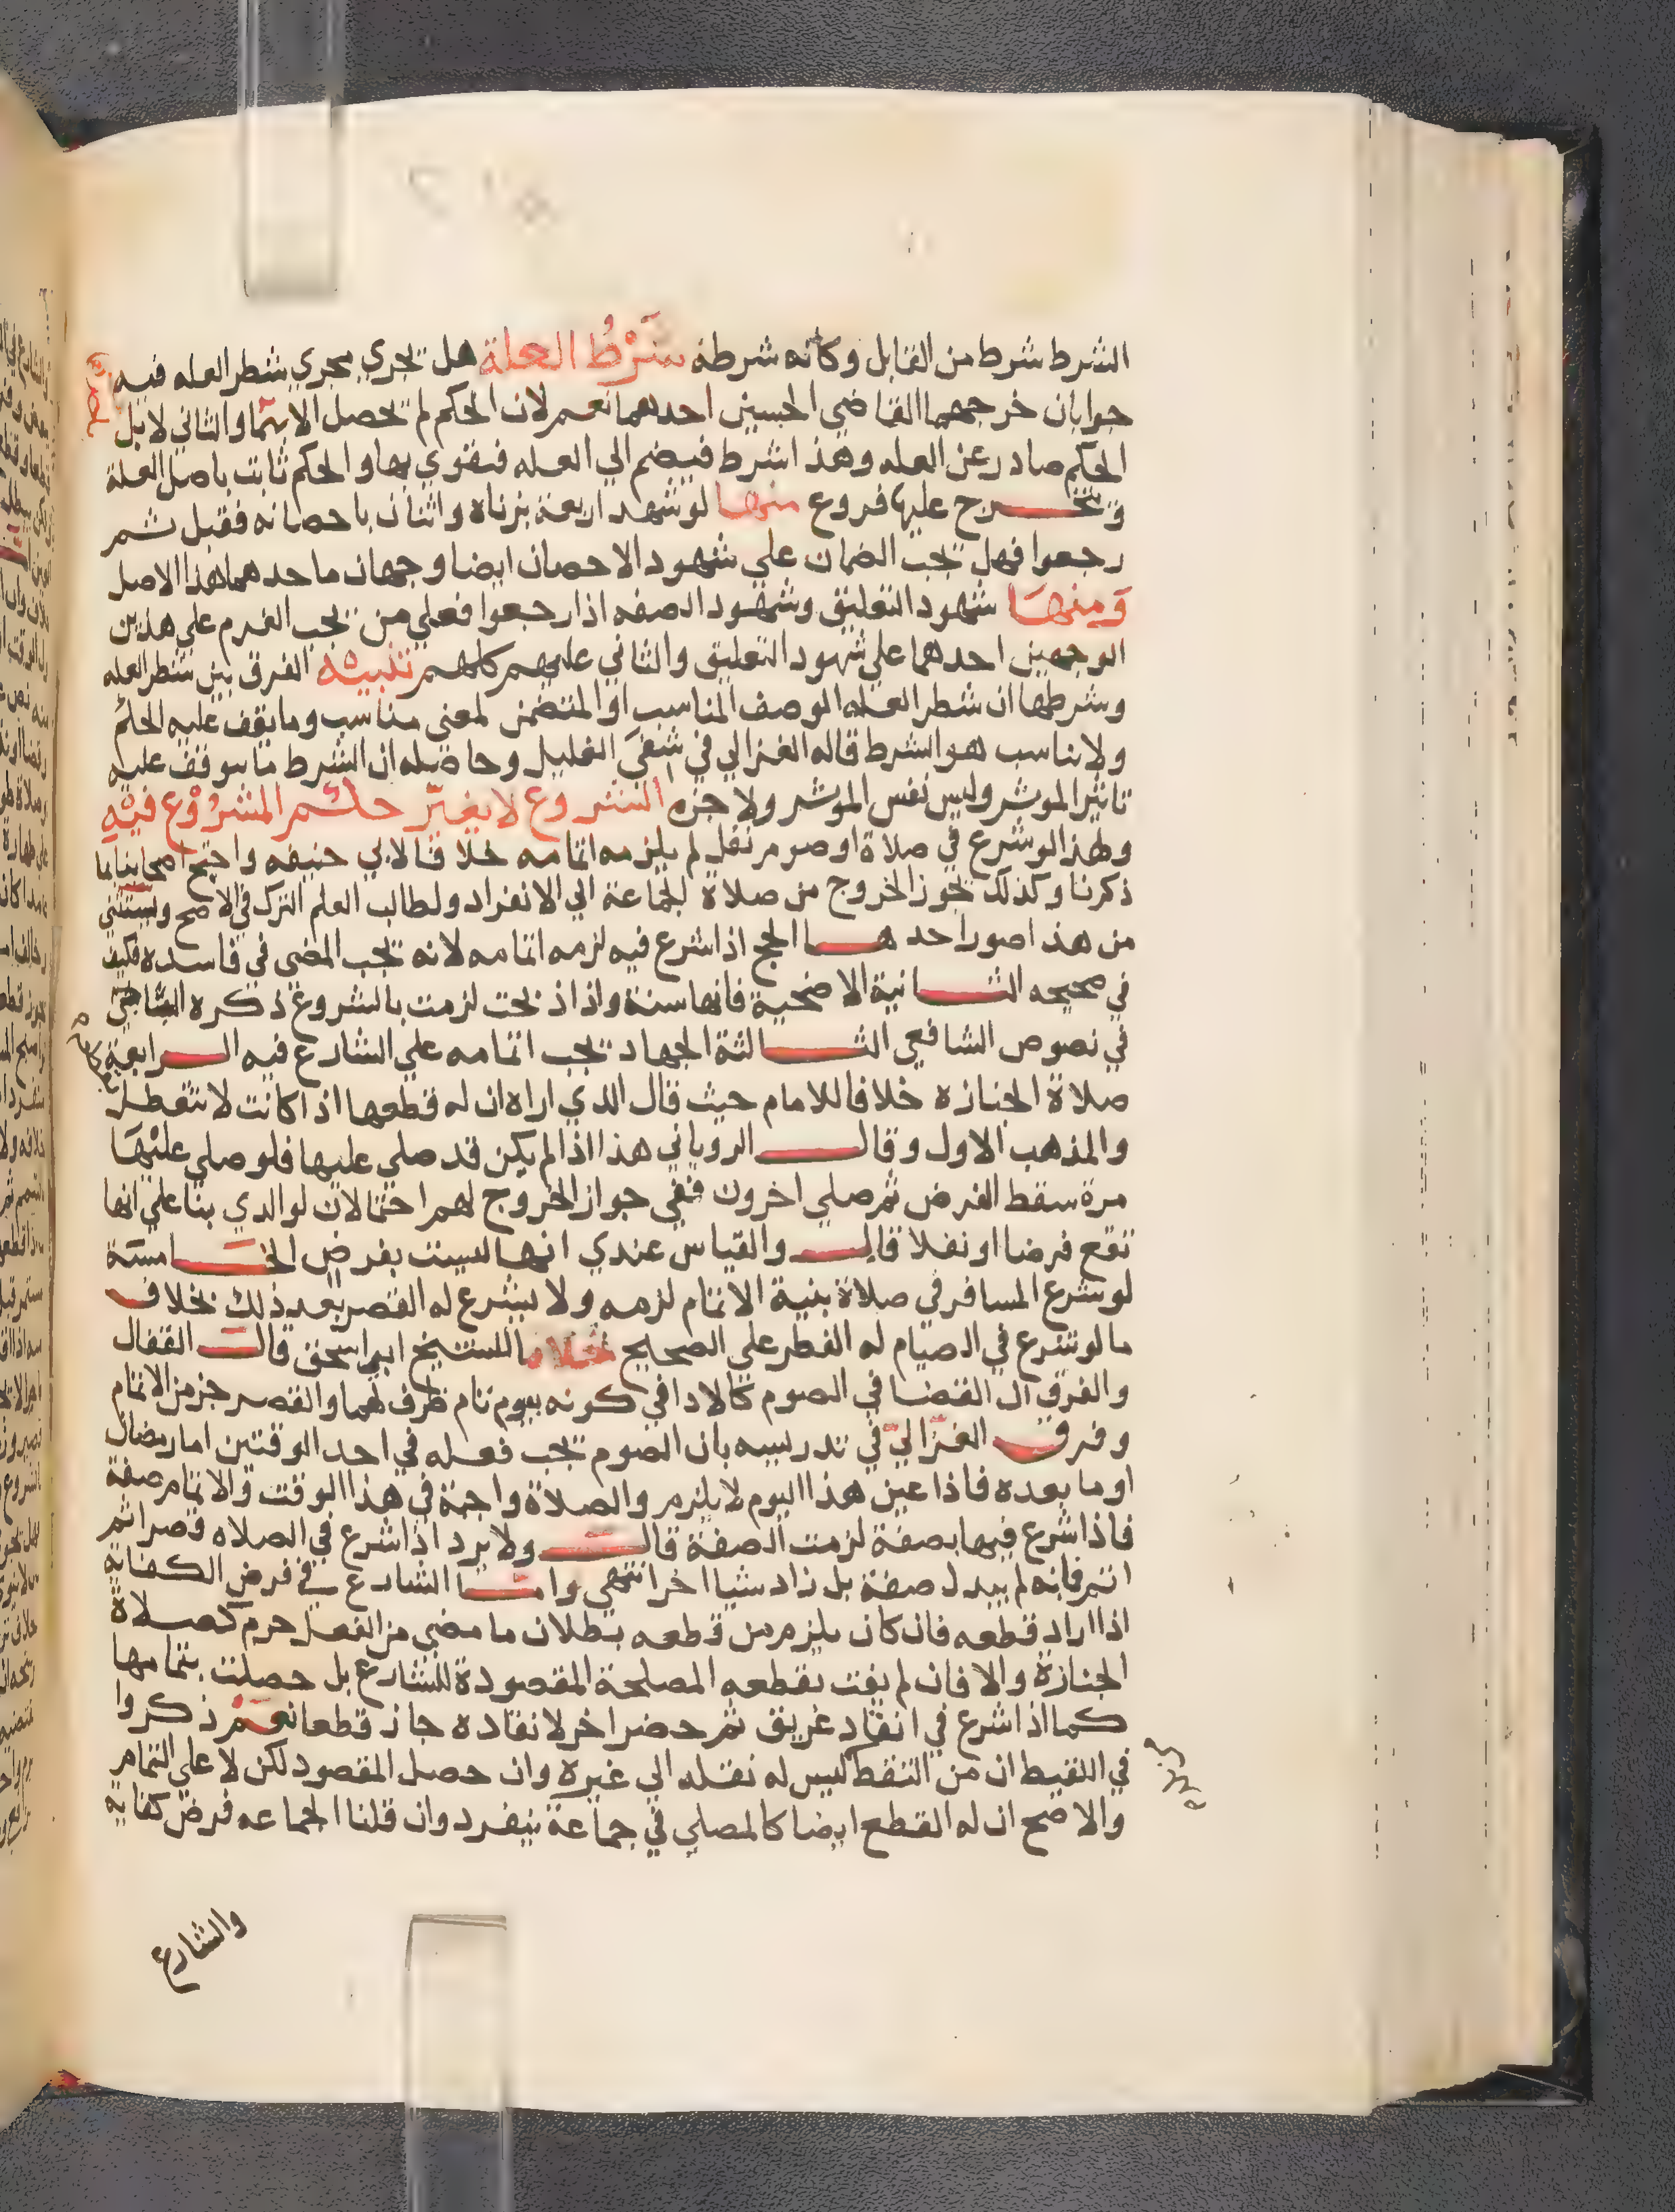 الشرط شرط من القابل وكانه شرطة شَرْطُ العلة هل تجري مجري شطر العله فيه
جوابان خرجهما القاضي الحسين احدهما نعم لان الحكم لم تحصل الا بهما والثاني لا بل
الحكم صادر عن العله وهذا شرط فيضم الي العله فتقوي بها والحكم ثابت باصل العلة
وتخرج عليها فروع منها لو شهد اربعة بزناه واثنان باحصانه فقبل ثم
رجعوا فهل تجب الضمان علي شهود الاحصان ايضا وجهان ماحدهما هذا الاصل
وَمنهَا شهود التعليق وشهود الصفه اذا رجعوا فعلي من تجب الغرم علي هذين
الوجهين احدهما علي شهود التعليق والثاني عليهم كلهم تنبيه الفرق بين شطر العله
وشرطها ان شطر العله الوصف المناسب او المتضمن لمعني مناسب وما يقف عليه الحكم
ولا يناسب هو الشرط قاله الغزالي في شفي الغليل وحاصله ان الشرط ما يتوقف عليه
تاثير الموثر وليس نفس الموثر ولا جزه الشروع لا يغيّر حكم المشرُوْع فيْه
ولهذا لو شرع في صلاة او صوم نفل لم يلزمه اتمامه خلافا لابي حنيفه واحتج اصحابنا بما
ذكرنا وكذلك تجوز الخروج من صلاة الجماعة الي الانفراد ولطالب العلم الترك في الاصح ويستثني
من هذا صور احدها الحج اذا شرع فيه لزمه اتمامه لانه تجب المضي في فاسده فكيف
في صحيحه الثانية الاضحية فانها سنة واذا ذبحت لزمت بالشروع ذكره الشاشي
في نصوص الشافعي الثالثة الجهاد تجب اتمامه علي الشارع فيه الرابعة
صلاة الجنازه خلافا للامام حيث قال الذي اراه ان له قطعها اذا كانت لا تتعطل
والمذهب الاول وقال الروياني هذا اذا لم يكن قد صلي عليها فلو صلي عليْهَا
مرة سقط الفرض ثم صلي اخرون ففي جواز الخروج لهم احتمالان لوالدي بنا علي انها
تقع فرضا او نفلا قال والقياس عندي انها ليست بفرض الخامسَة
لو شرع المسافر في صلاة بنية الاتمام لزمه ولا يشرع له القصر بعد ذلك بخلاف
ما لو شرع في الصيام له الفطر علي الصحيح خلافا للشيخ ابي اسحق قال القفال
والفرق ان القضا في الصوم كالادا في كونه بيوم تام ظرف لهما والقصر جز من الاتمام
وفرق الغزاليّ في تدريسه بان الصوم تجب فعله في احد الوقتين اما رمضان
او ما بعده فاذا عين هذا اليوم لا يلزم والصلاة واجبة في هذا الوقت والاتمام صفة
فاذا شرع فيها بصفة لزمت الصفة قال ولا يرد اذا شرع في الصلاه قصرا ثم
اتم فانه لم يبدل صفة بل زاد شيا اخر انتهي واما الشارع في فرض الكفاية
اذا اراد قطعه فان كان يلزم من قطعه بطلان ما مضي من الفعل حرم كصلاة
الجنازة والا فان لم يفت بقطعه المصلحة المقصودة للشارع بل حصلت بتمامها
كما اذا شرع في انقاد غريق ثم حضر اخر لانقاده جاز قطعا نعَمْ ذكروا
في اللقيط ان من التقط ليس له نقله الي غيره وان حصل المقصود لكن لا علي التمام
والاصح ان له القطع ايضا كالمصلي في جماعة ينفرد وان قلنا الجماعه فرض كفايه
والشارع